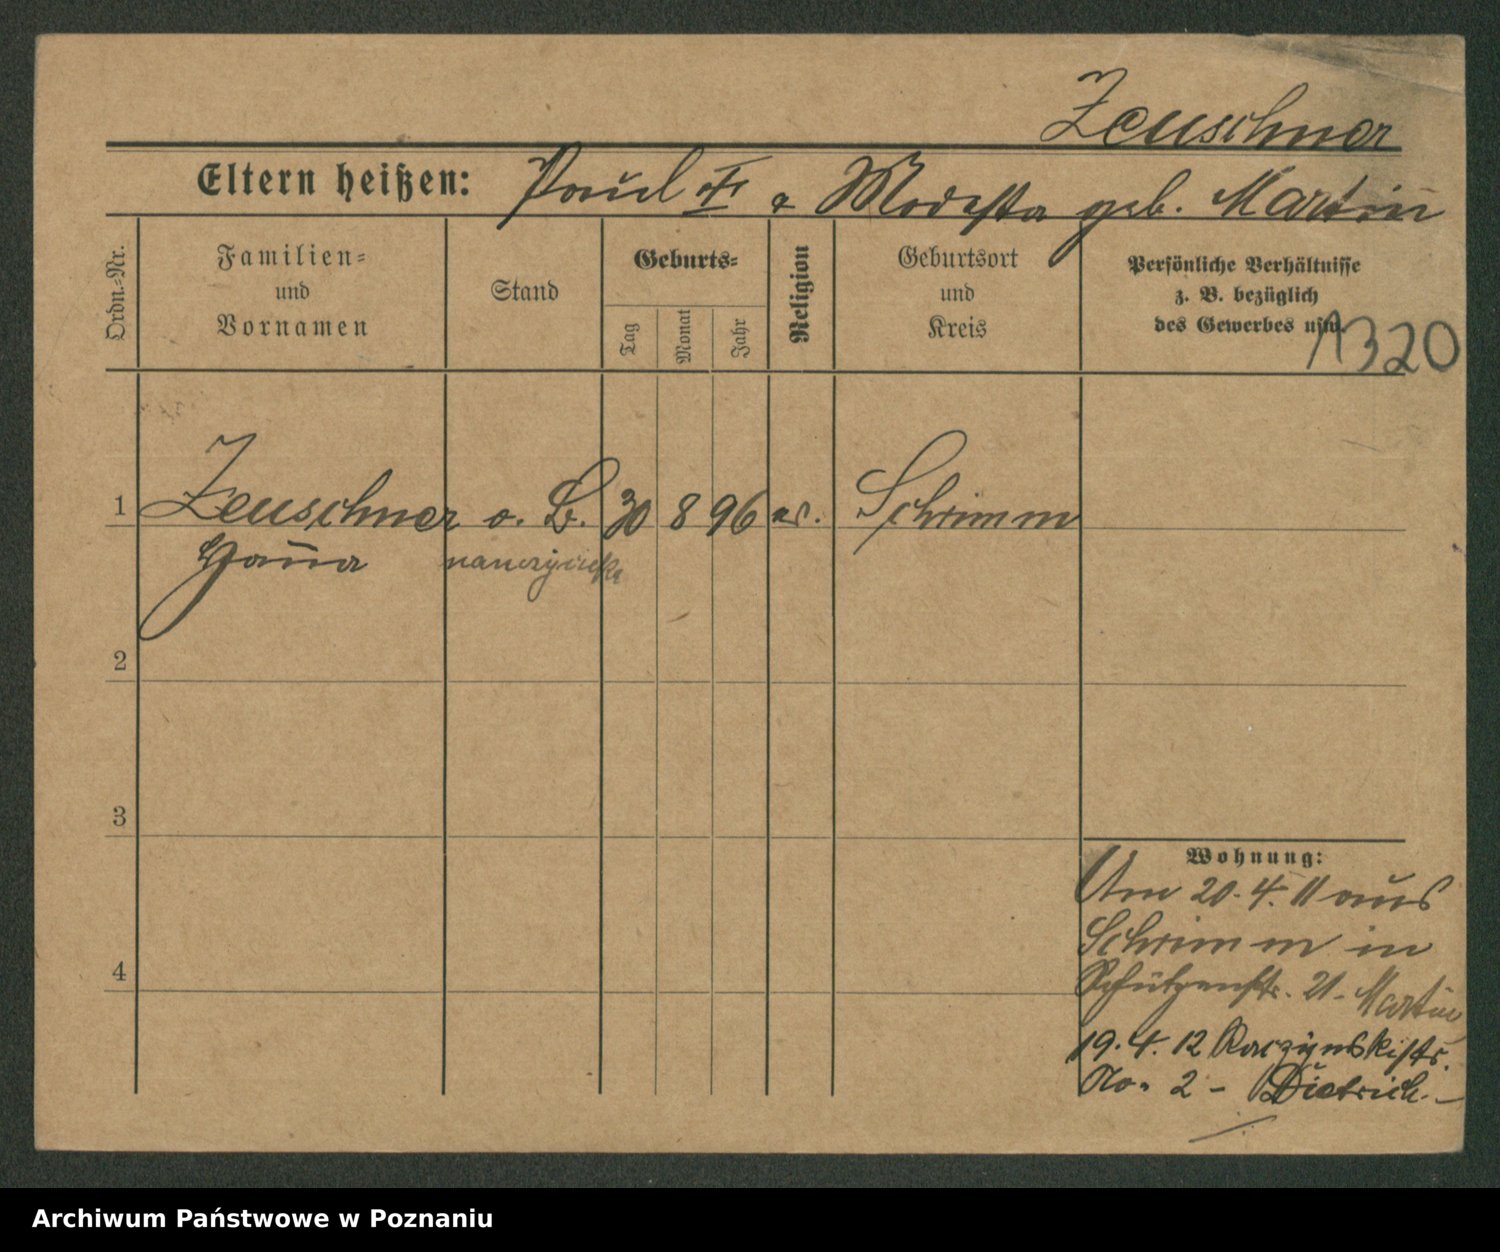 Zeuschner
Eltern heißen: Paul & Modesta geb. Martin
Ordn.=Nr.
Familien=
und
Vornamen
Stand
Geburts=
Tag
Monat
Jahr
Religion
Geburtsort
und
Kreis
Persönliche Verhältnisse
z. B. bezüglich
des Gewerbes usw.
1320
1 Zeuschner o. B. 30 8 96 ev. Schrimm
nauczycielka
2
3
4
Wohnung:
Am 20. 4. 11 aus
Schrimm in
Schützenstr. 21 - Martin
19. 4. 12 Raczynskistr.
No. 2 - Dietrich.-
Archiwum Państwowe w Poznaniu